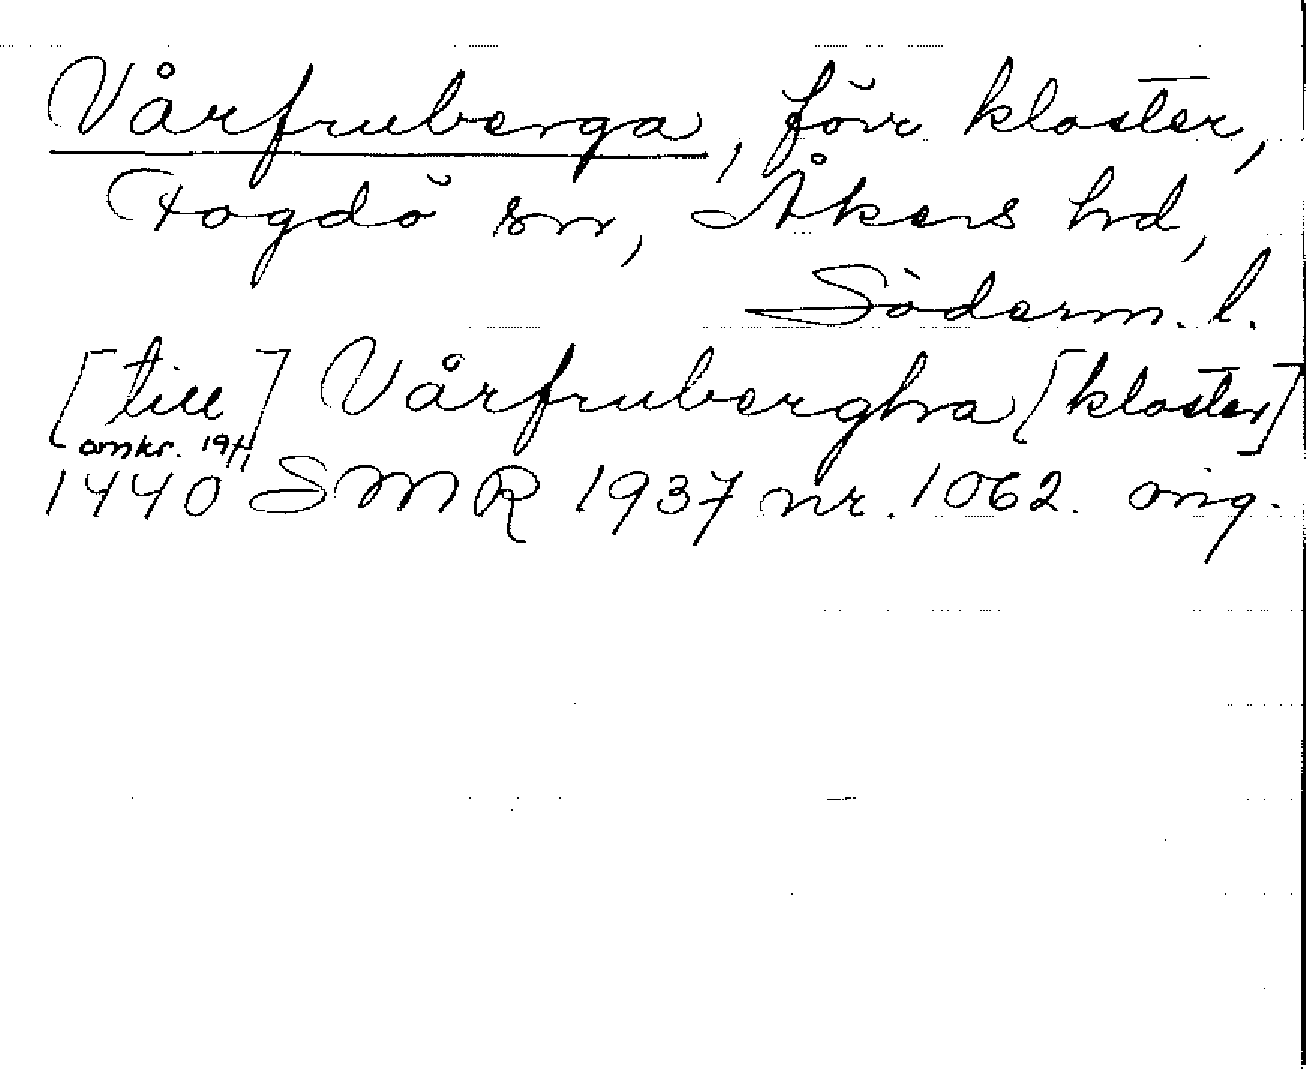 Vårfruberga, förr kloster,
Fogdö sn, Åkers hd,
Söderm. l.
[till] Vårfrubergha [kloster]
omkr. 19/11
1440 SMR 1937 nr. 1062. orig.